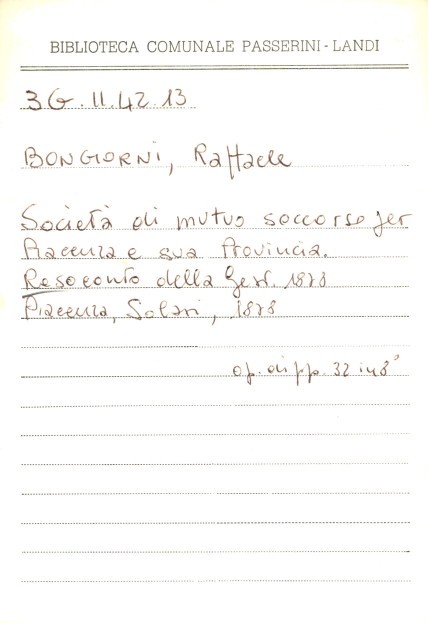 BIBLIOTECA COMUNALE PASSERINI - LANDI
3G.II.42.13
BONGIORNI, Raffaele
Società di mutuo soccorso per
Piacenza e sua Provincia.
Resoconto della Gest. 1878
Piacenza, Solari, 1878
op. di pp. 32 in 8°